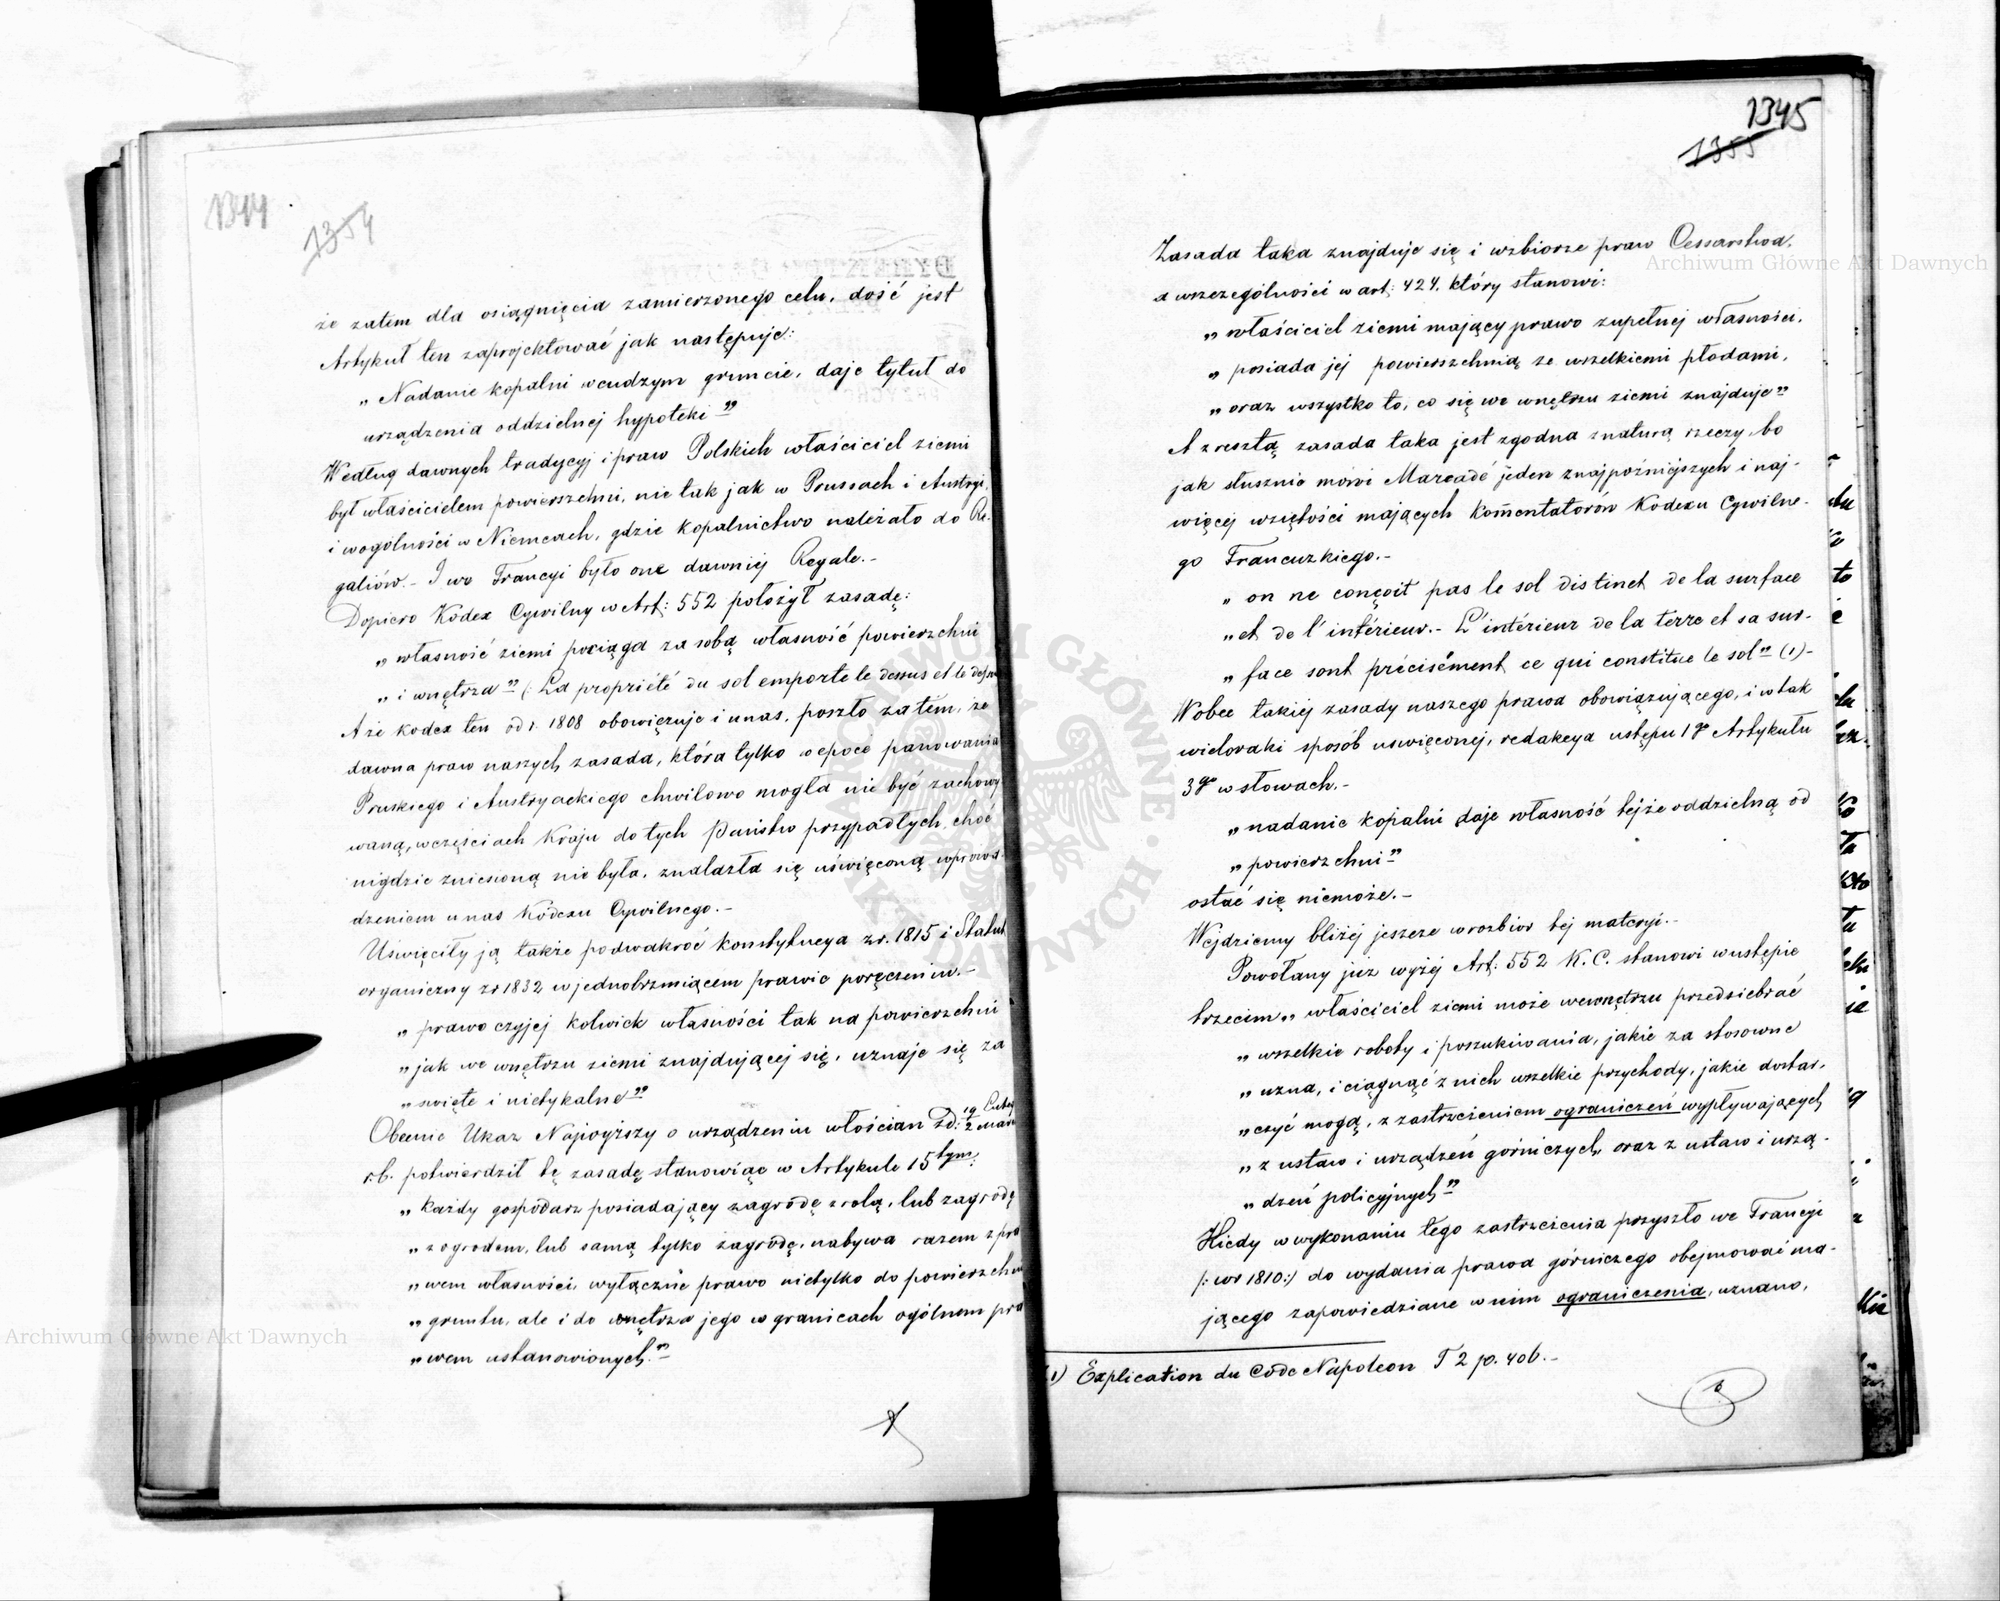 1344
1354
że zatem dla osiągnięcia zamierzonego celu, dość jest
Artykuł ten zaprojektować jak następuje:
„ Nadanie kopalni w cudzym gruncie, daje tytuł do
urządzenia oddzielnej hypoteki”
Według dawnych tradycyj i praw Polskich właściciel ziemi
był właścicielem powierzchni, nie tak jak w Prusach i Austryi,
i wogólności w Niemczech, gdzie kopalnictwo należało do Re-
galiów. – I we Francyi było one dawniej Regale. –
Dopiero Kodex Cywilny w Art: 552 położył zasadę:
„ własność ziemi pociąga za sobą własność powierzchni
„ i wnętrza” (: La propriété du sol emporte le dessus et le
A że kodex ten od r. 1808 obowięzuje i u nas, poszło zatem, że
dawna praw naszych zasada, która tylko w epoce panowania
Pruskiego i Austryackiego chwilowo mogła nie być zachowy
waną, w częściach Kraju do tych Państw przypadłych, choć
nigdzie zniesioną nie była, znalazła się uświęconą wprowa-
dzeniem u nas Kodexu Cywilnego. –
Uświęciły ją także podwakroć konstytucya z r. 1815 i Statut
organiczny z r 1832 w jednobrzmiącem prawie poręczeniu. –
„ prawo czyjej kolwiek własności tak na powierzchni
„ jak we wnętrzu ziemi znajdującej się, uznaje się za
„ święte i nietykalne”
Obecnie Ukaz Najwyższy o urządzeniu włościan z d: 19 Luteg / 2 Mar
r.b. potwierdził tę zasadę stanowiąc w Artykule 15tym:
„ każdy gospodarz posiadający zagrodę z rolą, lub zagrodę
„ z ogrodem, lub samą tylko zagrodę, nabywa razem z pra
„ wem własności, wyłącznie prawo nietylko do powierzchni
„ gruntu, ale i do wnętrza jego w granicach ogólnem pra
„ wem ustanowionych.”
1345
1355
Zasada taka znajduje się i w zbiorze praw Cesarstwa,
a w szczególności w art: 424, który stanowi:
„ właściciel ziemi mający prawo zupełnej własności,
„ posiada jej powierzchnią ze wszelkiemi płodami,
„ oraz wszystko to, co się we wnętrzu ziemi znajduje”
A zresztą zasada taka jest zgodna z naturą rzeczy, bo
jak słusznie mówi Marcadé jeden z najpóźniejszych i naj-
więcej wziętości mających komentatorów Kodexu Cywilne-
go Francuzkiego. –
„ on ne conçoit pas le sol distinct de la surface
„ et de l'intérieur. – L'intérieur de la terre et sa sur-
„ face sont précisément ce qui constitue le sol” (1) –
Wobec takiej zasady naszego prawa obowiązującego, i w tak
wieloraki sposób uswięconej, redakcya ustępu 1go Artykułu
3go w słowach. –
„ nadanie kopalni daje własność tejże oddzielną od
„ powierzchni”
ostać się niemoże. –
Wejdziemy bliżéj jeszcze w rozbiór tej materyi. –
Powołany już wyżej Art: 552 K. C. stanowi w ustępie
trzecim „ właściciel ziemi może wewnętrzu przedsiebrać
„ wszelkie roboty i poszukiwania, jakie za stosowne
„ uzna, i ciągnąć z nich wszelkie przychody, jakie dostar-
„ czyć mogą, z zastrzeżeniem ograniczeń wypływających
„ z ustaw i urządzeń górniczych, oraz z ustaw i urzą-
„ dzeń policyjnych”
Kiedy w wykonaniu tego zastrzeżenia przyszło we Francyi
/: w r 1810:/ do wydania prawa górniczego obejmować ma-
jącego zapowiedziane w nim ograniczenia, uznano,
1) Explication du Code Napoleon T 2 p. 406. –
Archiwum Główne Akt Dawnych
Archiwum Główne Akt Dawnych
ARCHIWUM GŁÓWNE AKT DAWNYCH